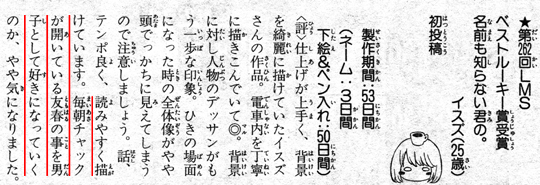 ★第262回LMS
ベストルーキー賞受賞
名前も知らない君の。
イスズ(25歳)
初投稿
製作期間:53日間
(ネーム:3日間
下絵&ペン入れ:50日間)
〈評〉仕上げが上手く、背景
を綺麗に描けていたイスズ
さんの作品。電車内を丁寧
に描きこんでいて◎。背景
に対し人物のデッサンがも
う一歩な印象。ひきの場面
になった時の全体像がやや
頭でっかちに見えてしまう
ので注意しましょう。話、
テンポ良く、読みやすく描
けています。毎朝チャック
が開いている友春の事を男
子として好きになっていく
のか、やや気になりました。